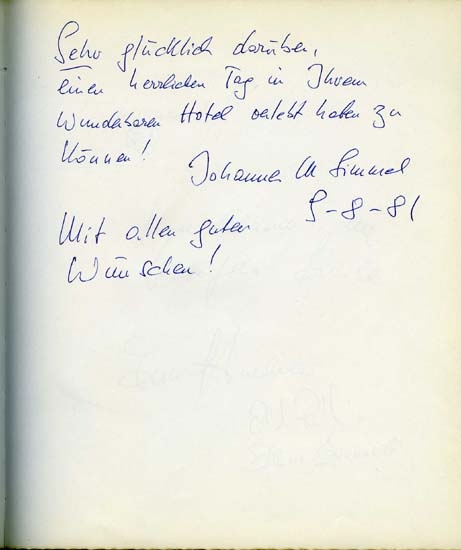 Sehr glücklich darüber,
einen herrlichen Tag in Ihrem
wunderbaren Hotel verlebt haben zu
können!
Johannes M Simmel
9-8-81
Mit allen guten
Wünschen!